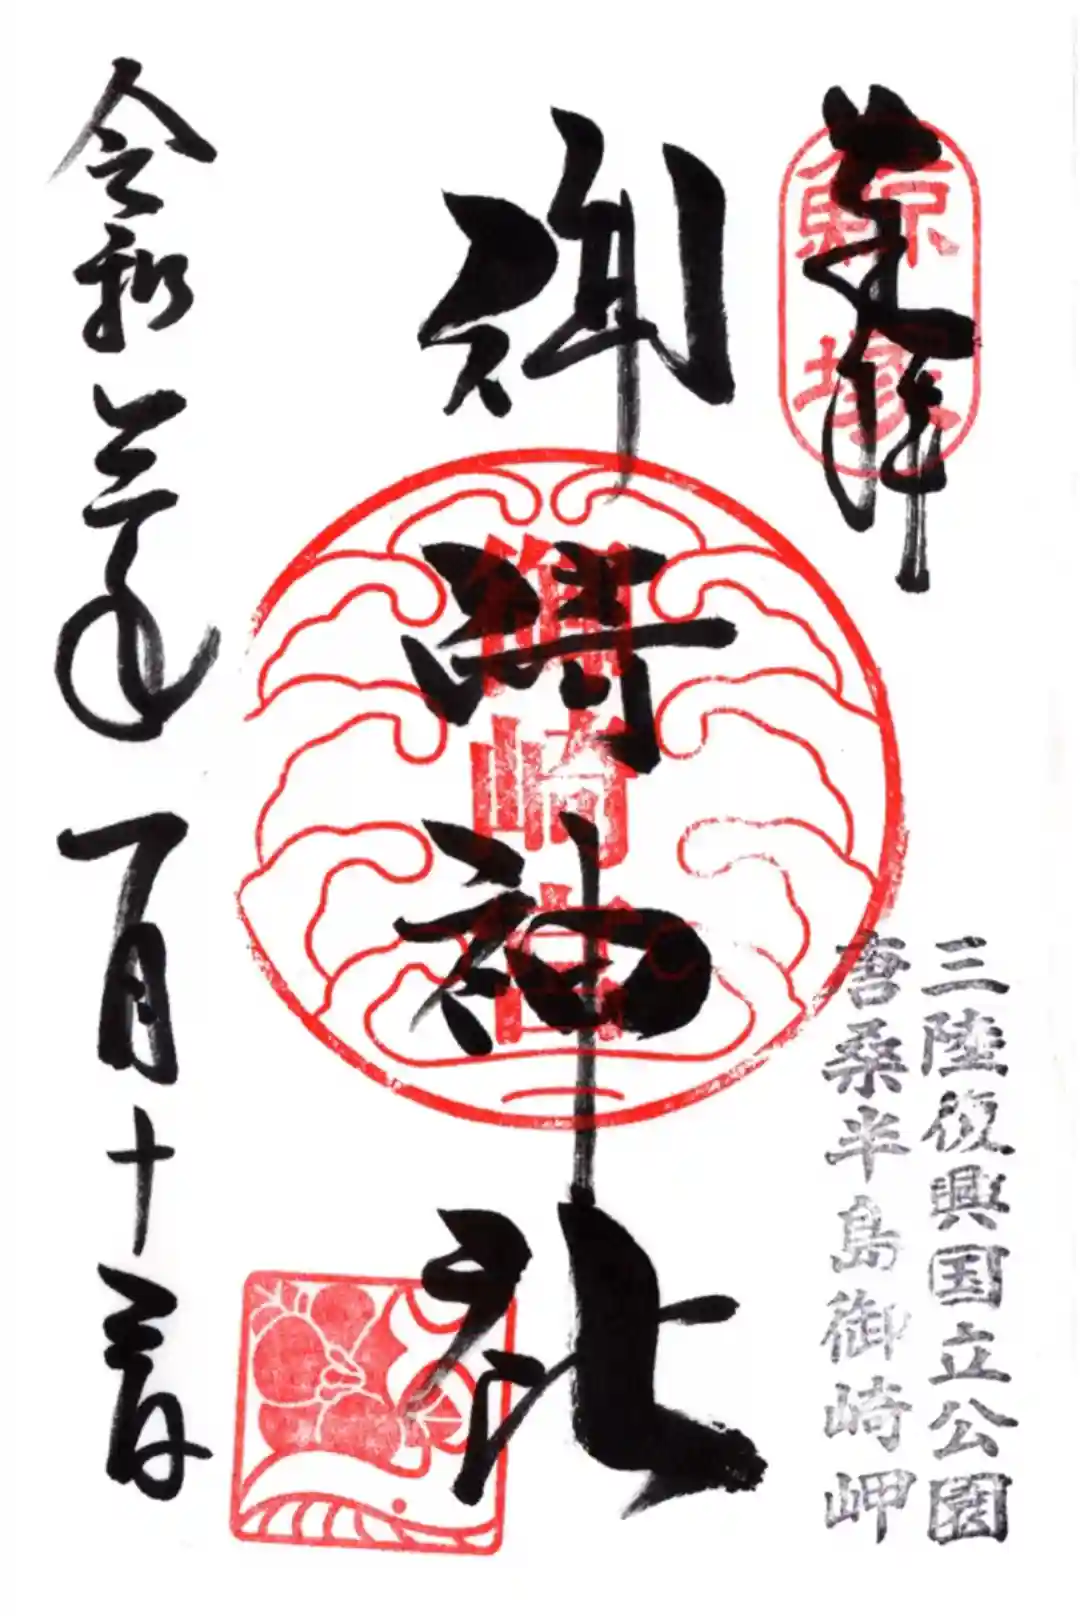 奉拝
鯨塚
三陸復興国立公園
唐桑半島御崎岬
御崎神社
御崎宮
令和三年一月十三日